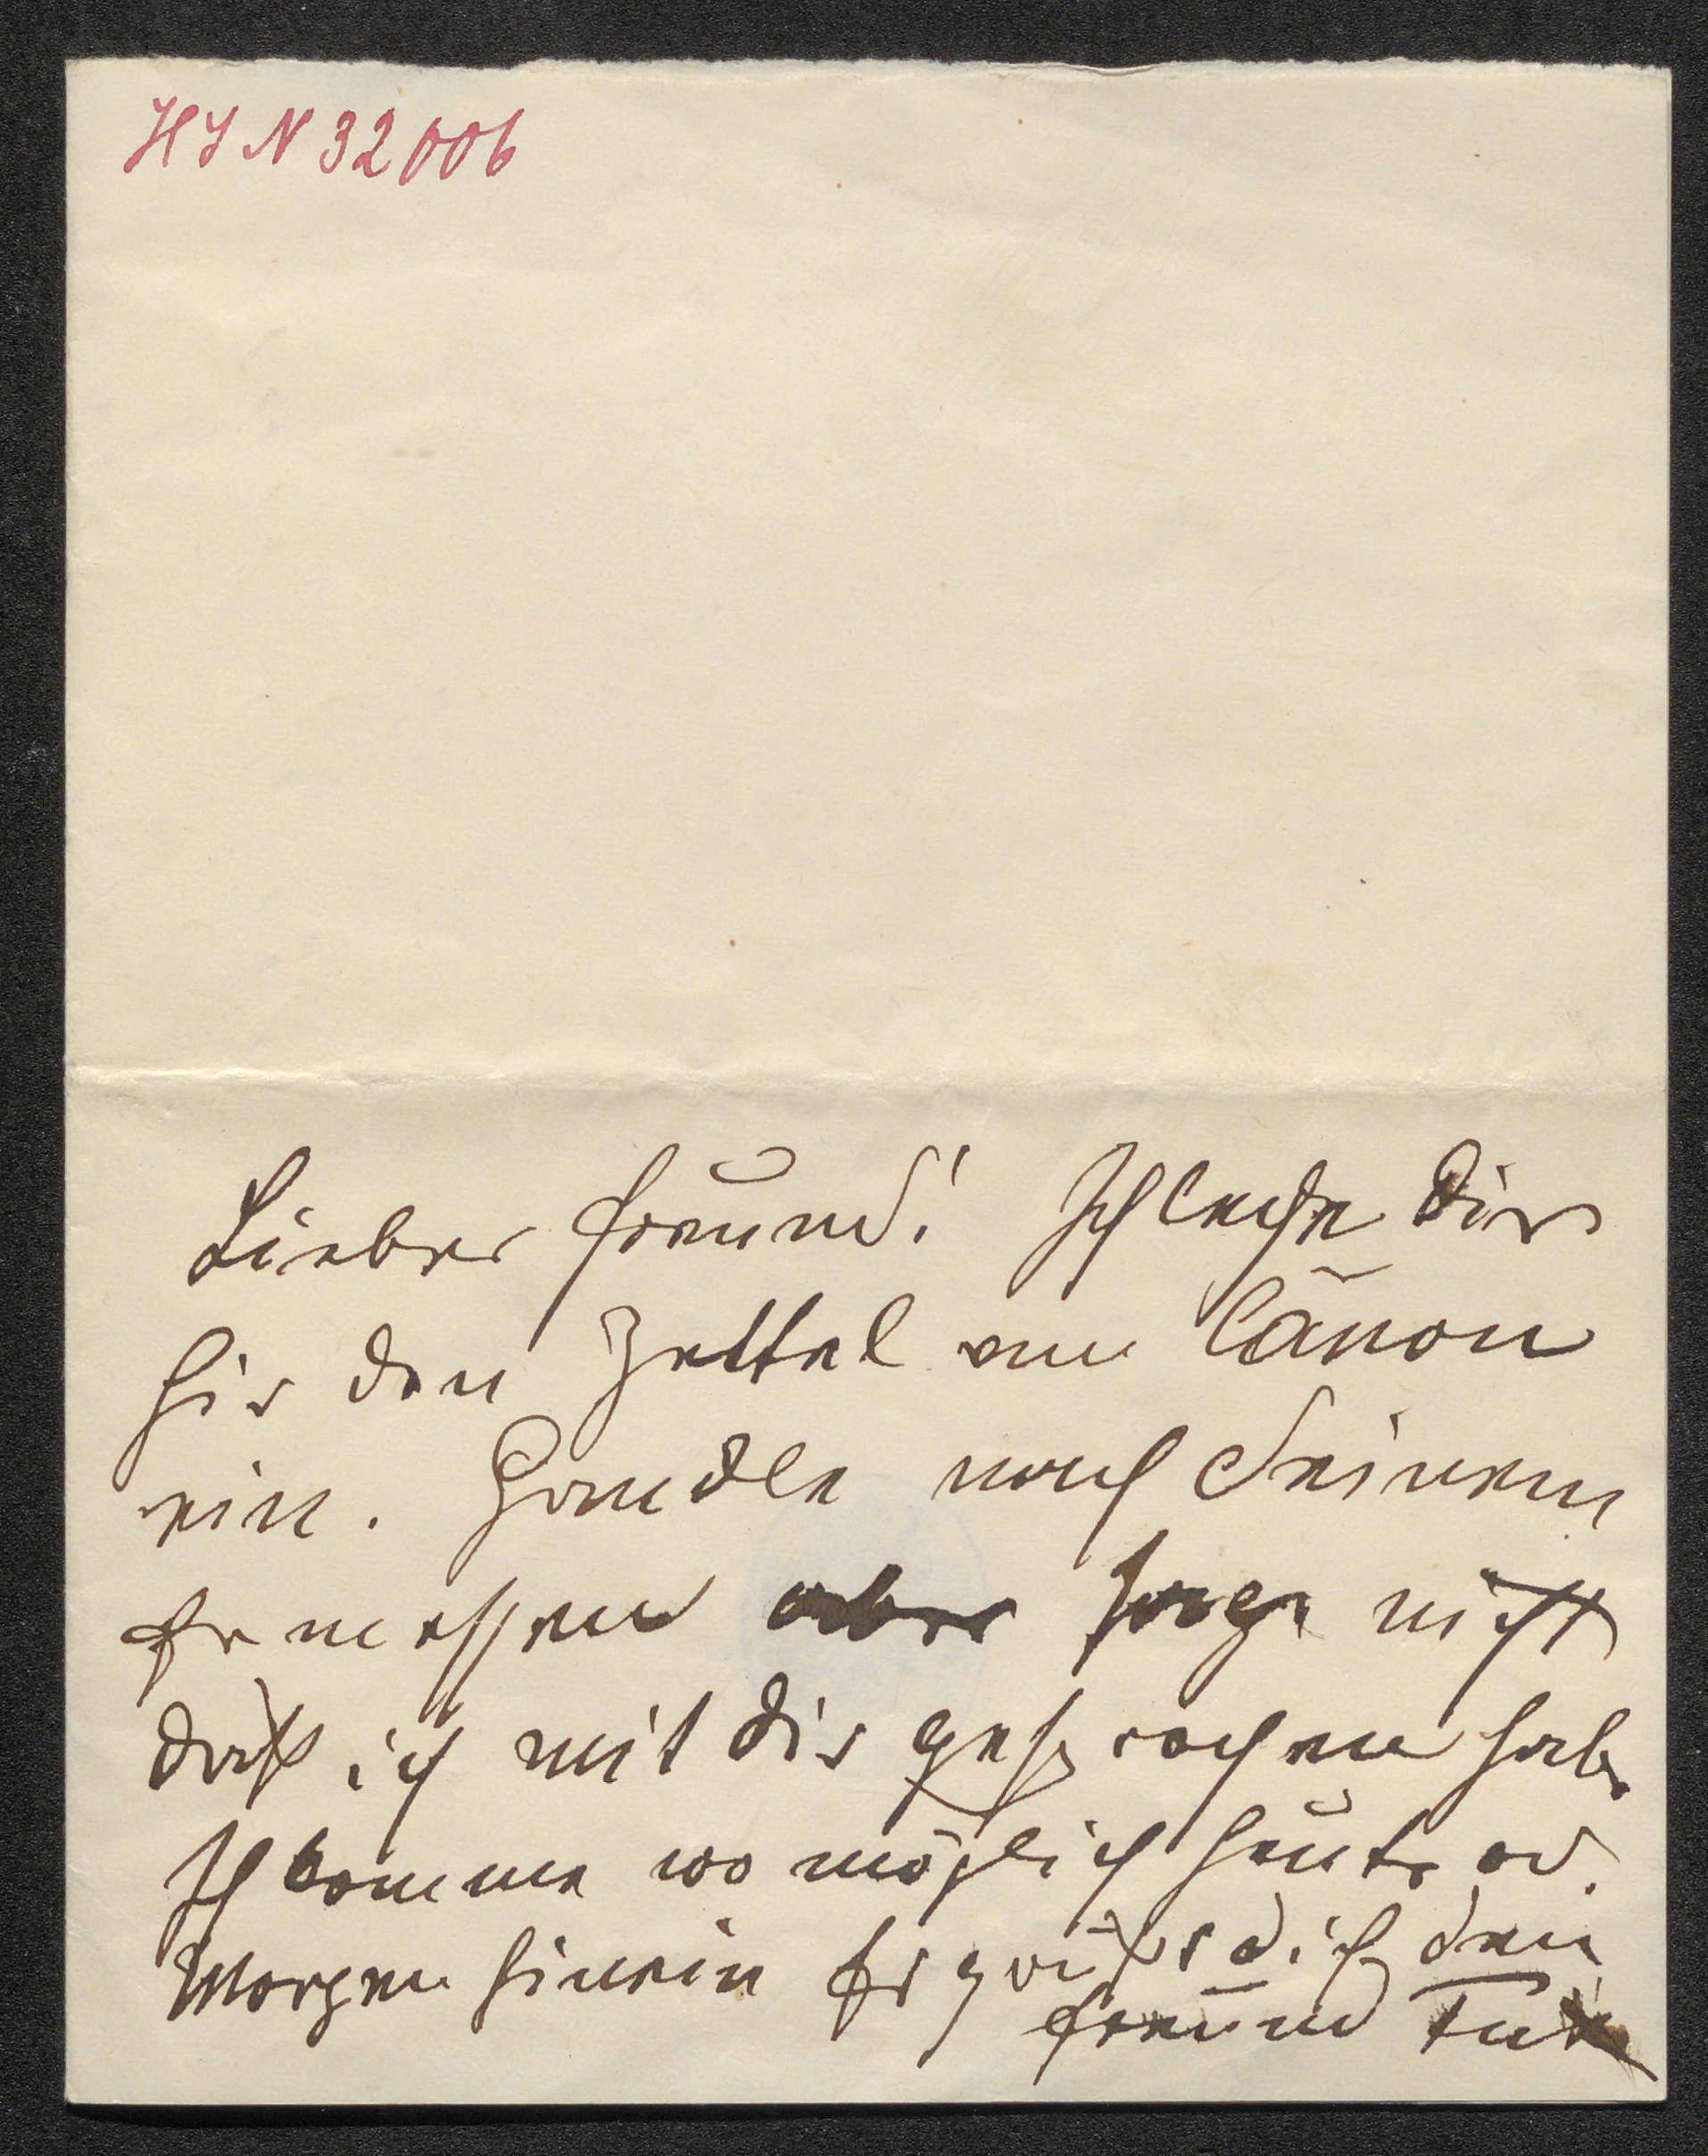 HIN 32006
Lieber Freund! Ich lege Dir
hir den Zettel von Canon
ein. Handle nach Deinem
Ermessen aber sage nicht
daß ich mit dir gesprochen habe
Ich komme wo möglich heute od.
Morgen hinein Es grüßt dich dein
Freund